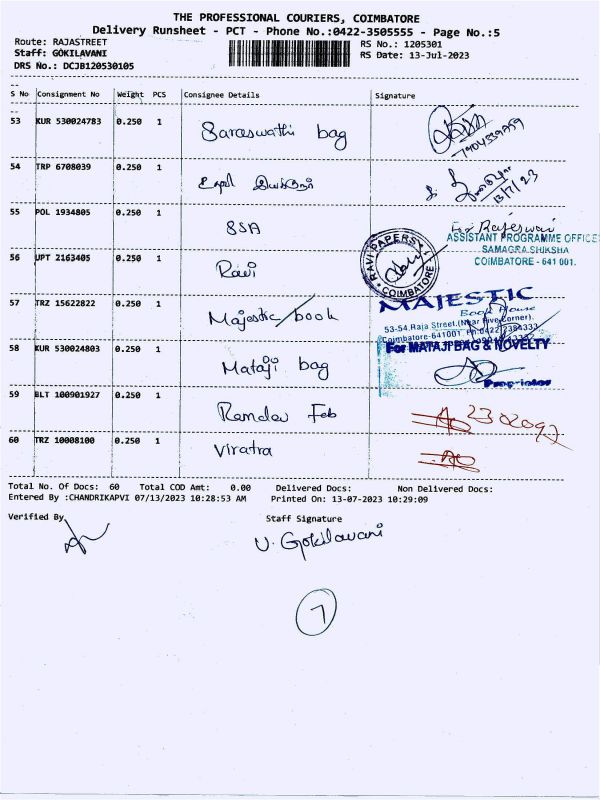 THE PROFESSIONAL COURIERS, COIMBATORE
Delivery Runsheet - PCT - Phone No.:0422-3505555 - Page No.:5
Route: RAJASTREET
RS No.: 1205301
Staff: GOKILAVANI
RS Date: 13-Jul-2023
DRS No.: DCJB120530105
S No Consignment No Weight PCS Consignee Details Signature
53 KUR 530024783 0.250 1 Saraswathi bag
7904539759
54 TRP 6708039 0.250 1
13/7/23
55 POL 1934805 0.250 1 SSA
For Rajeswari
ASSISTANT PROGRAMME OFFICE
SAMAGRA SHIKSHA
COIMBATORE - 641 001.
56 UPT 2163405 0.250 1 Ravi
RAVI PAPERS
COIMBATORE
57 TRZ 15622822 0.250 1 Majestic book
MAJESTIC
Book House
53-54, Raja Street, (Near Five Corner),
Coimbatore-641001. Ph:0422-2384333
58 KUR 530024803 0.250 1 Mataji bag
For MATAJI BAG & NOVELTY
Proprietor
59 BLT 100901927 0.250 1 Ramdev Feb
60 TRZ 10008100 0.250 1 Viratra
Total No. Of Docs: 60 Total COD Amt: 0.00 Delivered Docs: Non Delivered Docs:
Entered By :CHANDRIKAPVI 07/13/2023 10:28:53 AM Printed On: 13-07-2023 10:29:09
Verified By Staff Signature
V. Gokilavani
7